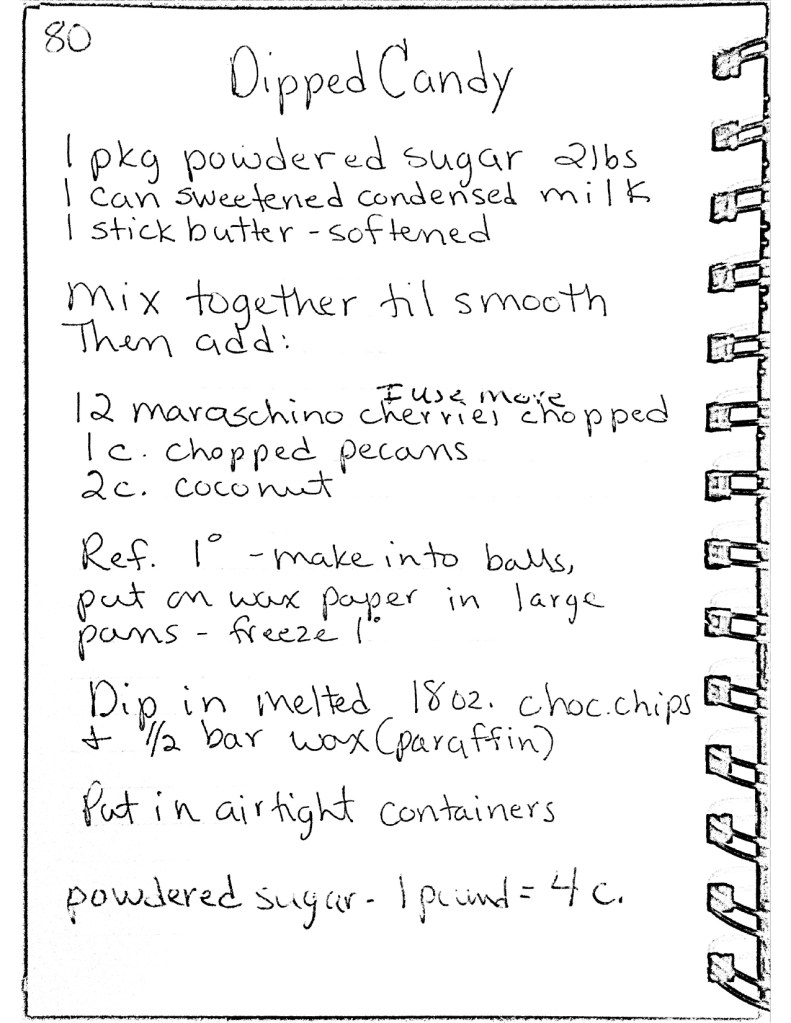 80
Dipped Candy
1 pkg powdered sugar 2lbs
1 can sweetened condensed milk
1 stick butter - softened
Mix together til smooth
Then add:
I use more
12 maraschino cherries chopped
1c. chopped pecans
2c. coconut
Ref. 1° - make into balls,
put on wax paper in large
pans - freeze 1°
Dip in melted 18oz. choc.chips
+ 1/2 bar wax (paraffin)
Put in airtight containers
powdered sugar - 1 pound = 4 c.